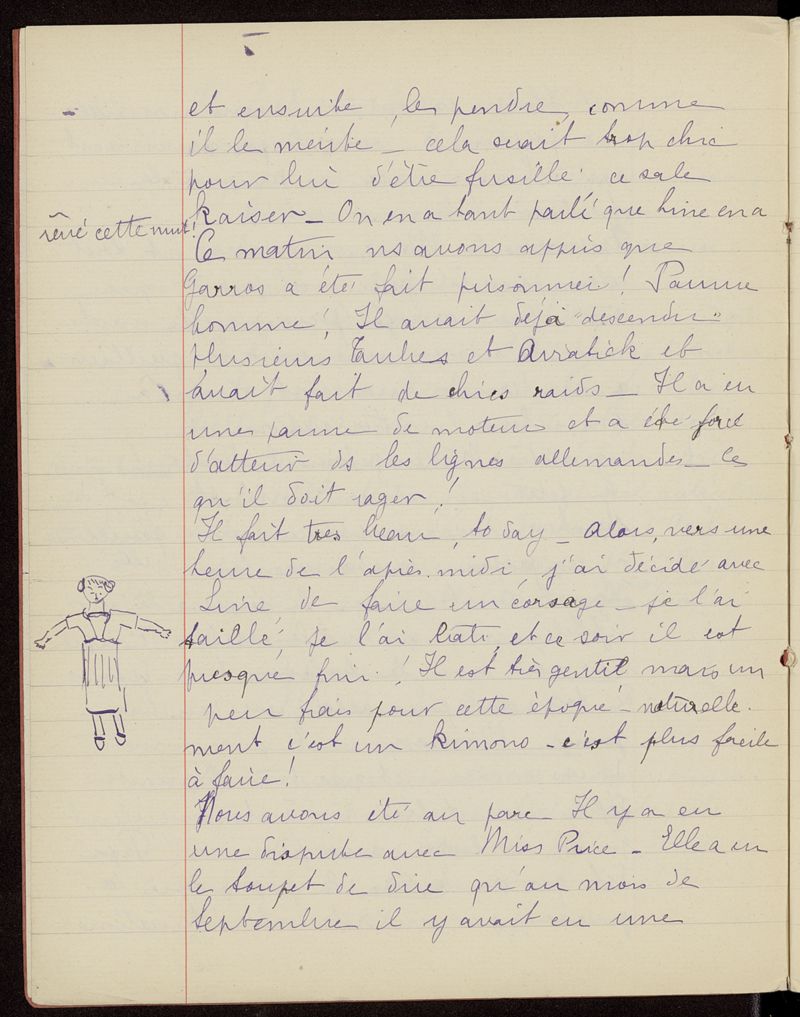 et ensuite, le pendre, comme
il le mérite _ cela serait trop chic
pour lui d'être fusillé ce sale
Kaiser _ On en a tant parlé que Line en a
rêvé cette nuit!
Ce matin ns avons appris que
Garros a été fait prisonnier! Pauvre
homme! Il avait déjà "descendu"
plusieurs Taubes et Aviatick et
avait fait de chics raids _ Il a eu
une panne de moteur et a été forcé
d'atterir ds les lignes allemandes _ Ce
qu'il doit rager!
Il fait très beau, to day _ Alors, vers une
heure de l'après-midi, j'ai décidé avec
Line, de faire un corsage _ je l'ai
taillé, je l'ai bâti, et ce soir il est
presque fini! Il est très gentil mais un
peu frais pour cette époque _ naturelle-
ment c'est un kimono _ c'est plus facile
à faire!
Nous avons été au parc _ Il y a eu
une dispute avec Miss Price _ Elle a eu
le toupet de dire qu'au mois de
Septembre il y avait eu une